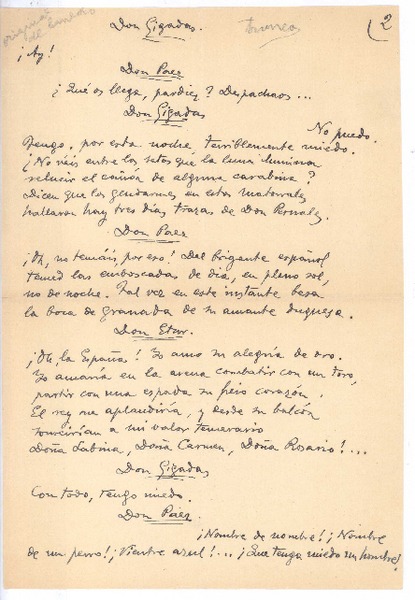 original
del maestro
Don Gigadas.
2
¡Ay!
Don Paez
¡Qué os llega, pardiez? Despachaos...
Don Gigadas
No puedo.
Tengo, por esta noche, terriblemente miedo.
¿No véis entre los setos que la luna ilumina
relucir el cañón de alguna carabina?
Dicen que los gendarmes en estos matorrales
hallaron hay tres días trazas de Don Pernales.
Don Paez
¡Oh, no temáis, por eso! Del brigante español
temed las emboscadas de día, en pleno sol,
no de noche. Tal vez en este instante besa
la boca de granada de su amante duquesa.
Don Etur.
¡Oh la España! Yo amo su alegría de oro.
Yo amaría en la arena combatir con un toro,
partir con una espada su fiero corazón.
El rey me aplaudiría, y desde su balcón
sonreirían a mi valor temerario
Doña Sabina, Doña Carmen, Doña Rosario!...
Don Gigadas
Con todo, tengo miedo.
Don Páez
¡Nombre de nombre! ¡Nombre
de un perro! ¡Vientre azul!... ¡Que tenga miedo un hombre!